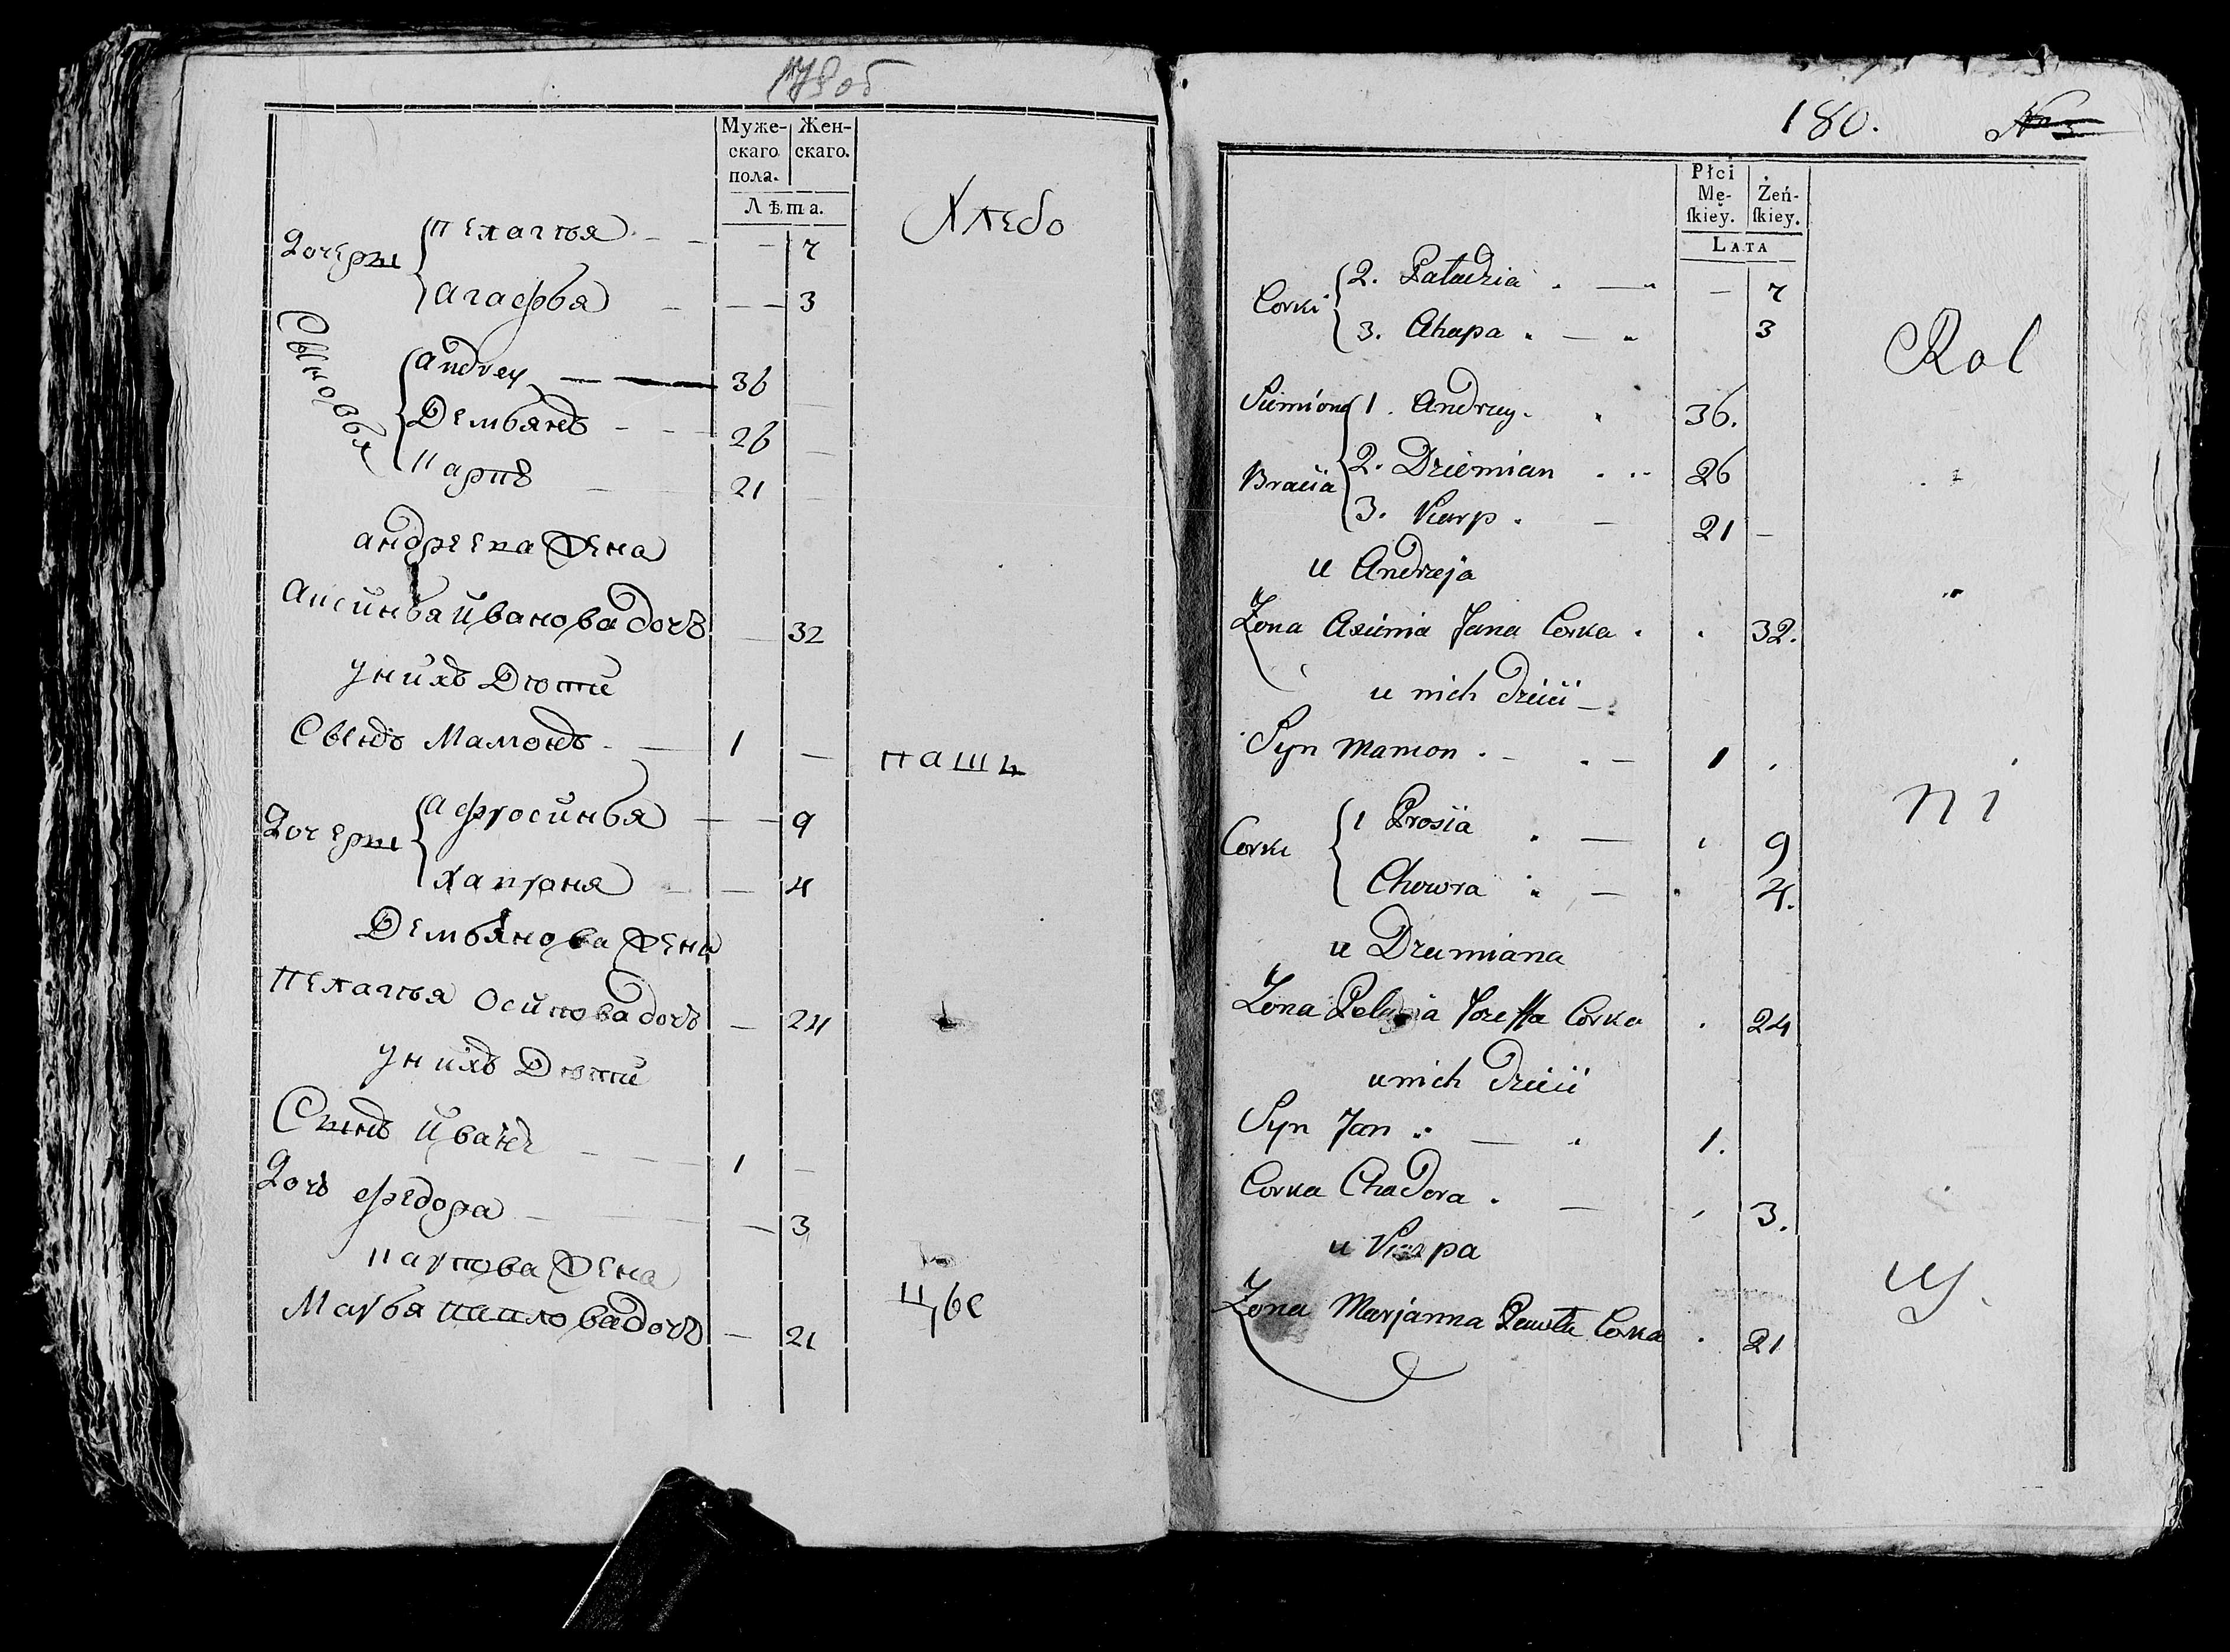 179 об
Муже- Жен-
скаго скаго.
пола.
Лѣта.
Хлебо
Дочери Пелагия — — — 7
Агафья — — — 3
Сыновья
Andrey — — 36 —
Демьянъ — — 26 —
Карпъ — — 21 —
Андреева Жена
Аксинья Иванова дочъ — 32
У нихъ Дѣти
Сынъ Мамонъ — — 1 —
паши
Дочери Афросинья — — 9
Хапроня — — 4
Демьянова Жена
Пелагия Осипова дочъ — 24
У нихъ Дѣти
Сынъ Иванъ — — 1 —
Дочъ Федора — — — 3
Карпова Жена
цые
Марья Павлова дочъ — 21
180. №3
Płci
Mę- Żeń-
ſkiey. ſkiey.
LATA
Corki 2. Paładzia . — — 7
3. Ahapa . — 3
Rol
Siemiona 1. Andrzey . . 36.
Bracia 2. Dziemian . . 26
3. Karp . — 21 —
u Andrzeja
Zona Axinia Jana Corka . . 32.
u nich dzieci —
Syn Mamon . — . — 1 .
ni
Corki 1 Prosia . — . 9
Chowra . — . 4.
u Dziemiana
Zona Pelagia Jozeffa Corka . 24
u nich dzieci
Syn Jan . — . 1.
Corka Chadora . — . 3.
u Karpa
cy.
Zona Marjanna Pawła Corka . 21